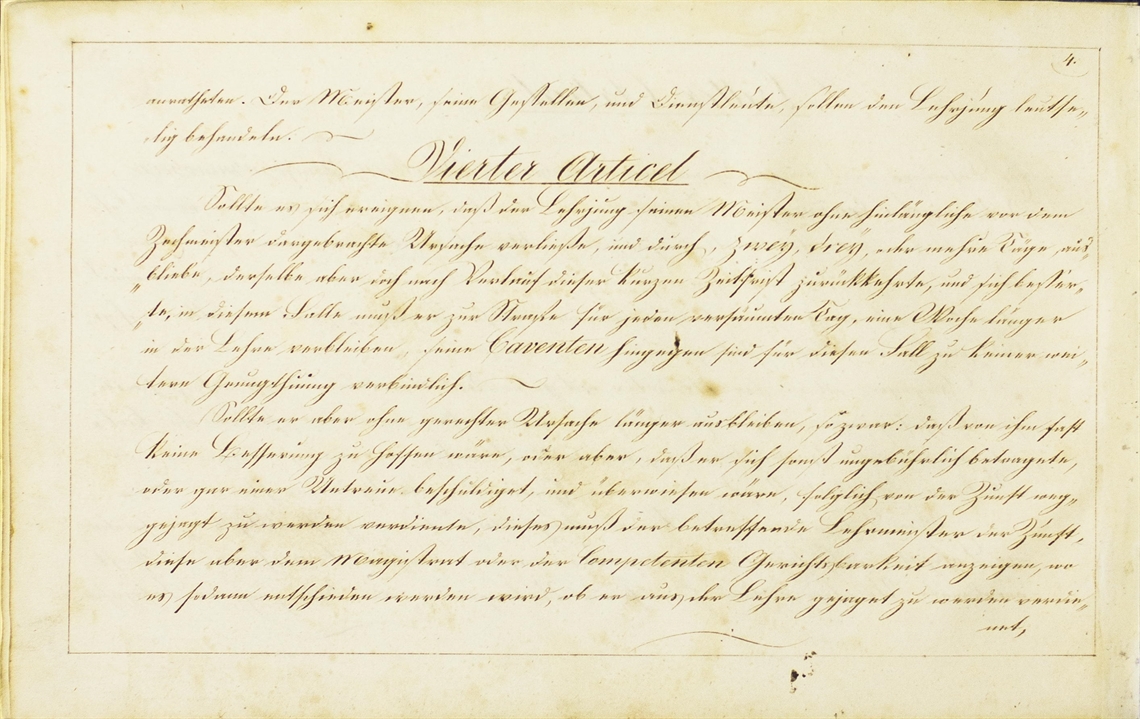 4.
anrathen. Der Meister, seine Gesellen, und Dienstleute, sollen den Lehrjung leutse„
lig behandeln.
Vierter Articel
Sollte es sich ereignen, daß der Lehrjung seinen Meister ohne hinlängliche vor dem
Zechmeister dargebrachte Ursache verließe, und durch, zwey, drey, oder mehre Täge, aus„
„bliebe, derselbe aber doch nach Verlauf dieser kurzen Zeitfrist zurückkehrte, und sich besser„
„te, in diesem Falle muß er zur Strafe für jeden versäumten Tag, eine Woche länger
in der Lehre verbleiben, seine Caventen hingegen sind für diesen Fall zu keiner wei„
tern Genugthuung verbindlich.
Sollte er aber ohne gerechter Ursache länger ausbleiben, so zwar: daß von ihm fast
keine Besserung zu hoffen wäre, oder aber, daß er sich sonst ungebührlich betragete,
oder gar einer Untreue beschuldiget, und überwiesen wäre, folglich von der Zunft weg„
gejagt zu werden verdiente, dieses muß der betreffende Lehrmeister der Zunft,
diese aber dem Magistrat oder der Competenten Gerichtsbarkeit anzeigen, wo
es sodann entschieden werden wird, ob er aus der Lehre gejaget zu werden verdie„
net,